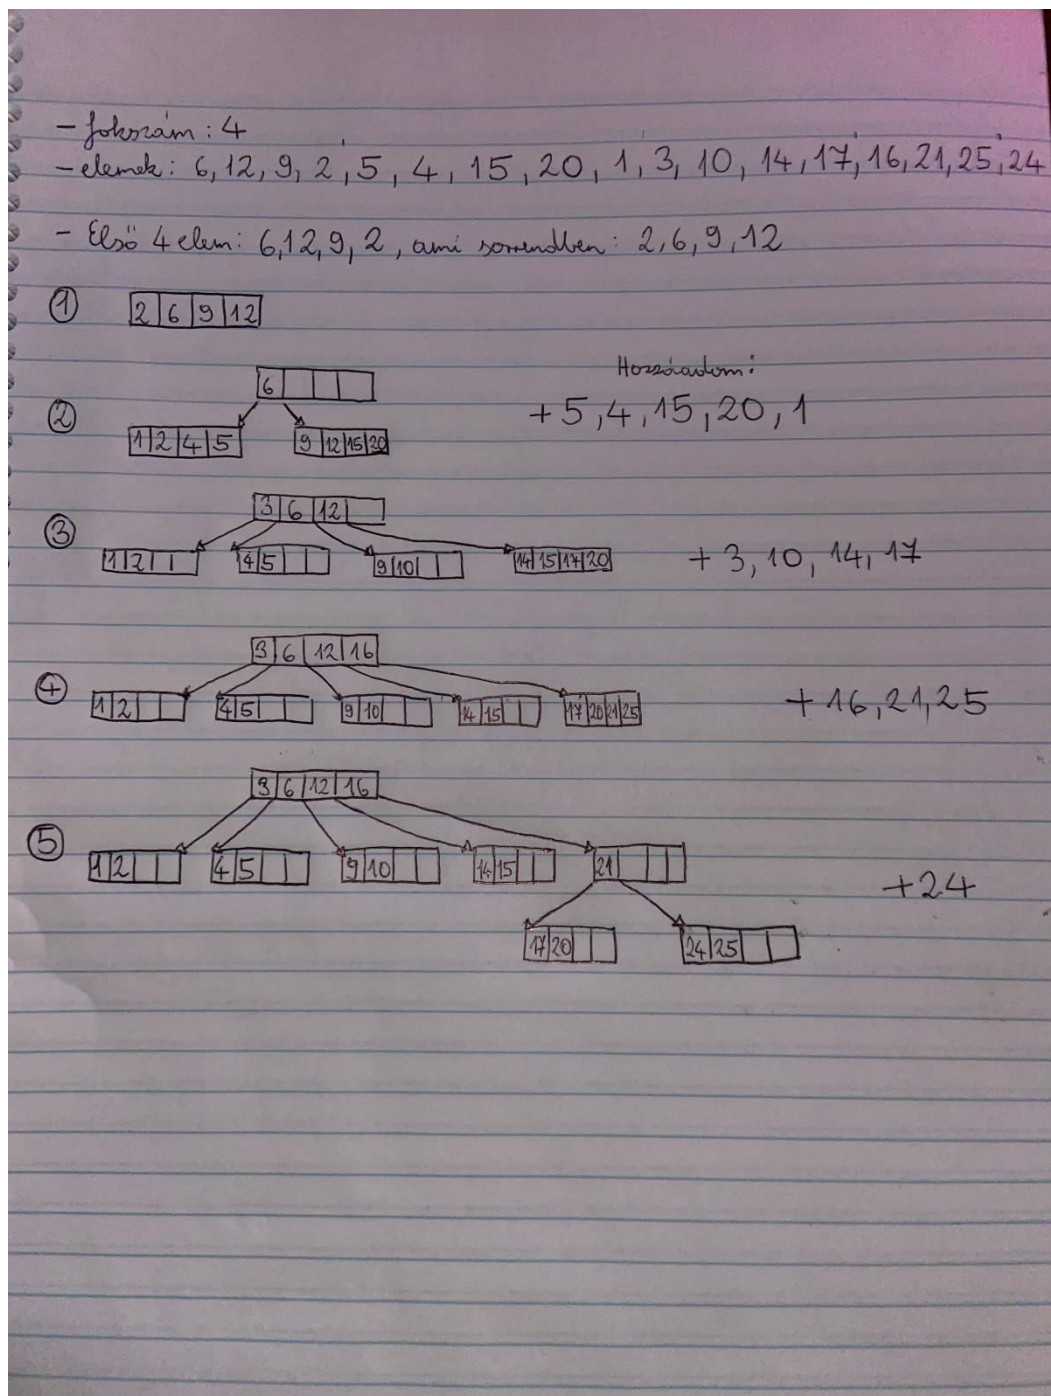 - fokszám: 4
- elemek: 6, 12, 9, 2, 5, 4, 15, 20, 1, 3, 10, 14, 17, 16, 21, 25, 24
- Első 4 elem: 6,12,9,2, ami sorrendben: 2,6,9,12
① 2 6 9 12
Hozzáadom:
6
② +5,4,15,20,1
1 2 4 5 9 12 15 20
3 6 12
③ 1 2 4 5 9 10 14 15 17 20 + 3, 10, 14, 17
3 6 12 16
④ 1 2 4 5 9 10 14 15 17 20 21 25 + 16, 21, 25
3 6 12 16
⑤ 1 2 4 5 9 10 14 15 21 +24
17 20 24 25